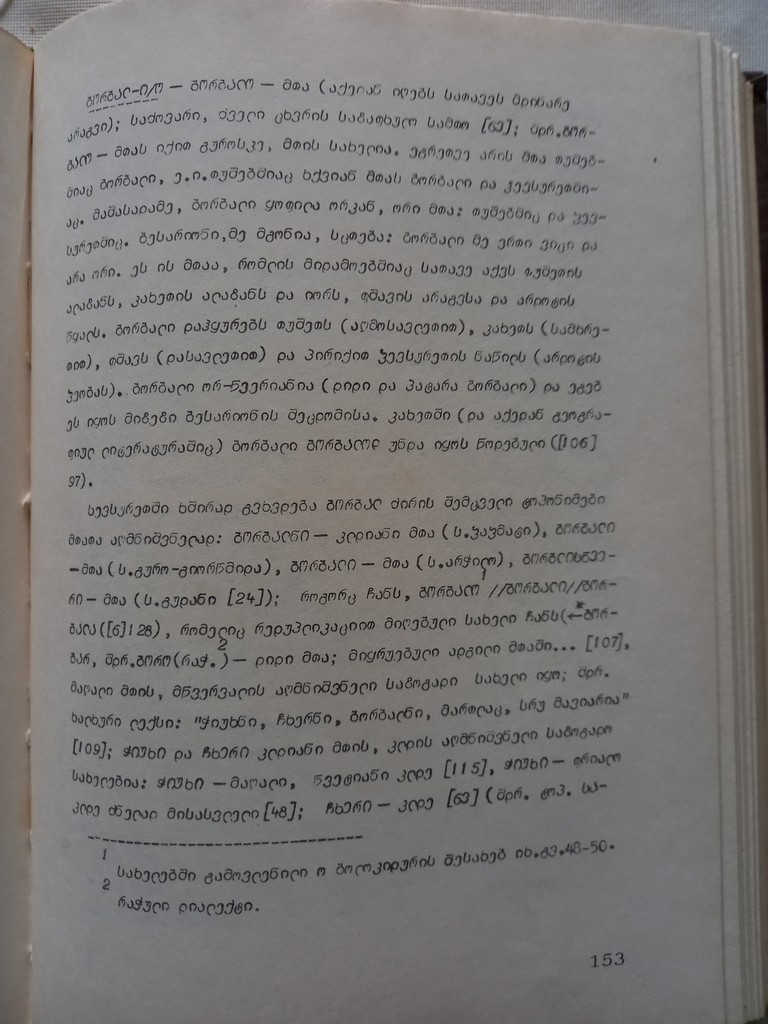 ბორბალ-ი/ო — ბორბალო — მთა (აქედან იღებს სათავეს მდინარე
არაგვი); საძოვარი, ძველი ცხვრის საზაფხულო სამთო [63]; შდრ.ბორ-
ბალო — მთას იქით გუროსკე, მთის სახელია. ეგრეთვე არის მთა თუშებ-
შიაც ბორბალი, ე.ი.თუშებშიაც ხქვიან მთას ბორბალი და ჴევსურეთში-
აც. მაშასადამე, ბორბალი ყოფილა ორგან, ორი მთა: თუშებშიც და ჴევ-
სურეთშიც. ბესარიონი,მე მგონია, სცთება: ბორბალი მე ერთი ვიცი და
არა ორი. ეს ის მთაა, რომლის მიდამოებშიაც სათავე აქვს თუშეთის
ალაზანს, კახეთის ალაზანს და იორს, ფშავის არაგვსა და არდოტის
წყალს. ბორბალი დაჰყურებს თუშეთს (აღმოსავლეთით), კახეთს (სამხრე-
თით), ფშავს (დასავლეთით) და პირიქით ჴევსურეთის ნაწილს (არდოტის
ჴეობას). ბორბალი ორ-წვერიანია (დიდი და პატარა ბორბალი) და ეგებ
ეს იყოს მიზეზი ბესარიონის შეცდომისა. კახეთში (და აქედან გეოგრა-
ფიულ ლიტერატურაშიც) ბორბალი ბორბალოდ უნდა იყოს წოდებული ([106]
97).
ხევსურეთში ხშირად გვხვდება ბორბალ ძირის შემცველი ტოპონიმები
მთათა აღმნიშვნელად: ბორბალნი — კლდიანი მთა (ს.ჴახმატი), ბორბალი
—მთა (ს.გურო-გიორწმიდა), ბორბალი — მთა (ს.არჭილო), ბორბლისწვე-
რი — მთა (ს.გუდანი [24]); როგორც ჩანს, ბორბალო1//ბორბალი//ბორ-
ბალა([6]128), რომელიც რედუპლიკაციით მიღებული სახელი ჩანს(←*ბორ-
ბარ, შდრ.ბორო(რაჭ.)2— დიდი მთა; მიყრუებული ადგილი მთაში... [107],
მაღალი მთის, მწვერვალის აღმნიშვნელი საზოგადო სახელი იყო; შდრ.
ხალხური ლექსი: "ჭიუხნი, ჩხერნი, ბორბალნი, მართლაც, სრუ მავიარია"
[109]; ჭიუხი და ჩხერი კლდიანი მთის, კლდის აღმნიშვნელი საზოგადო
სახელებია: ჭიუხი — მაღალი, წვეტიანი კლდე [115], ჭიუხი — ფრიალო
კლდე ძნელად მისასვლელი[48]; ჩხერი — კლდე [63] (შდრ. ტოპ. სა-
1
სახელებში გამოვლენილი ო ბოლოკიდურის შესახებ იხ.გვ.48-50.
2
რაჭული დიალექტი.
153